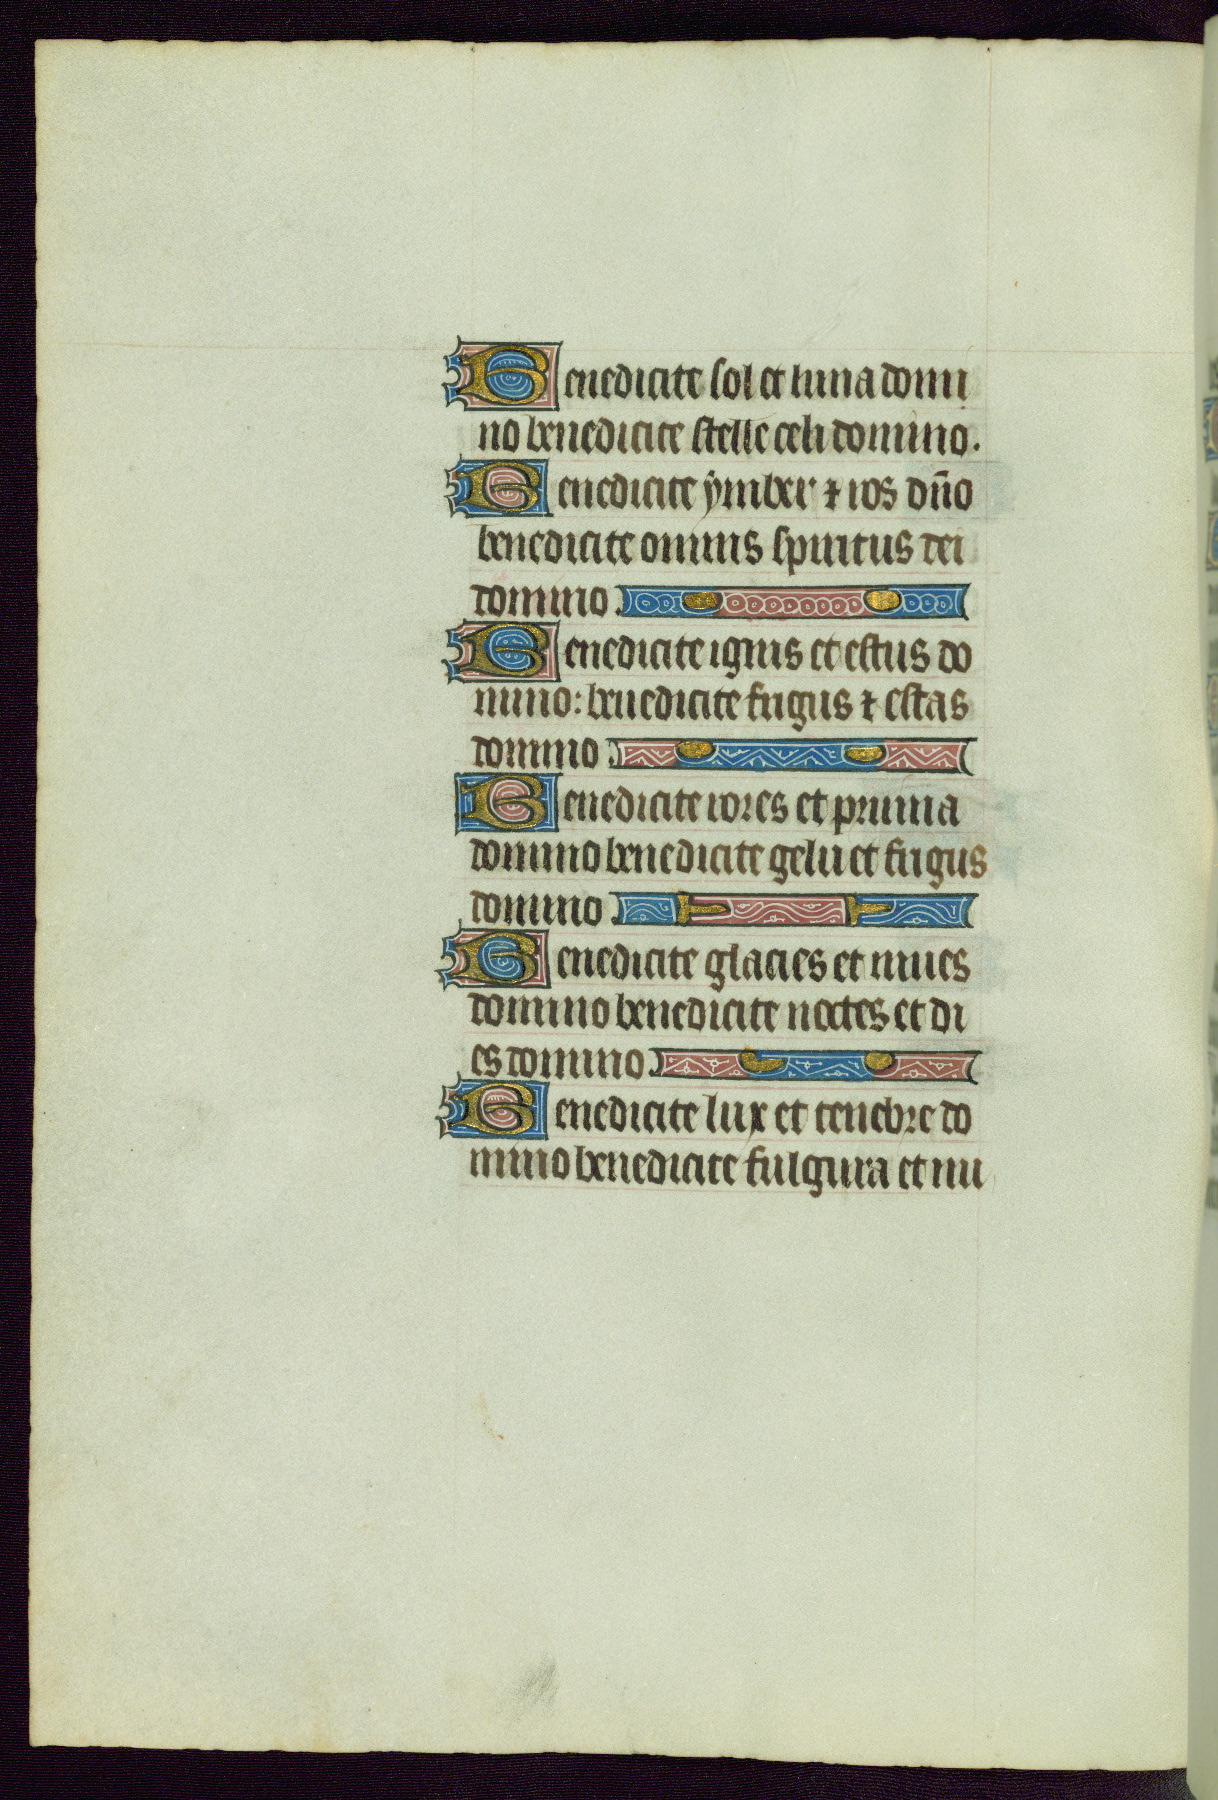 Benedicite sol et luna domi
no benedicite stelle celi domino.
Benedicite ymber ⁊ ros dño
benedicite omnis spiritus dei
domino.
Benedicite ignis et estus do
mino: benedicite frigus ⁊ estas
domino.
Benedicite rores et pruina
domino benedicite gelu et frigus
domino.
Benedicite glacies et niues
domino benedicite noctes et di
es domino.
Benedicite lux et tenebre do
mino benedicite fulgura et nu